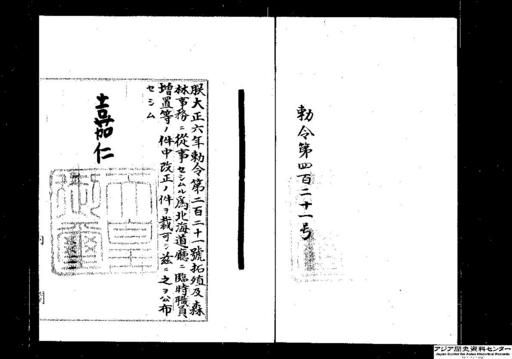 勅令第四百二十一号
朕大正六年勅令第二百二十一號拓殖及森
林事務ニ從事セシムル爲北海道廳ニ臨時職員
増置等ノ件中改正ノ件ヲ裁可シ茲ニ之ヲ公布
セシム
嘉仁
アジア歴史資料センター
Japan Center for Asian Historical Records